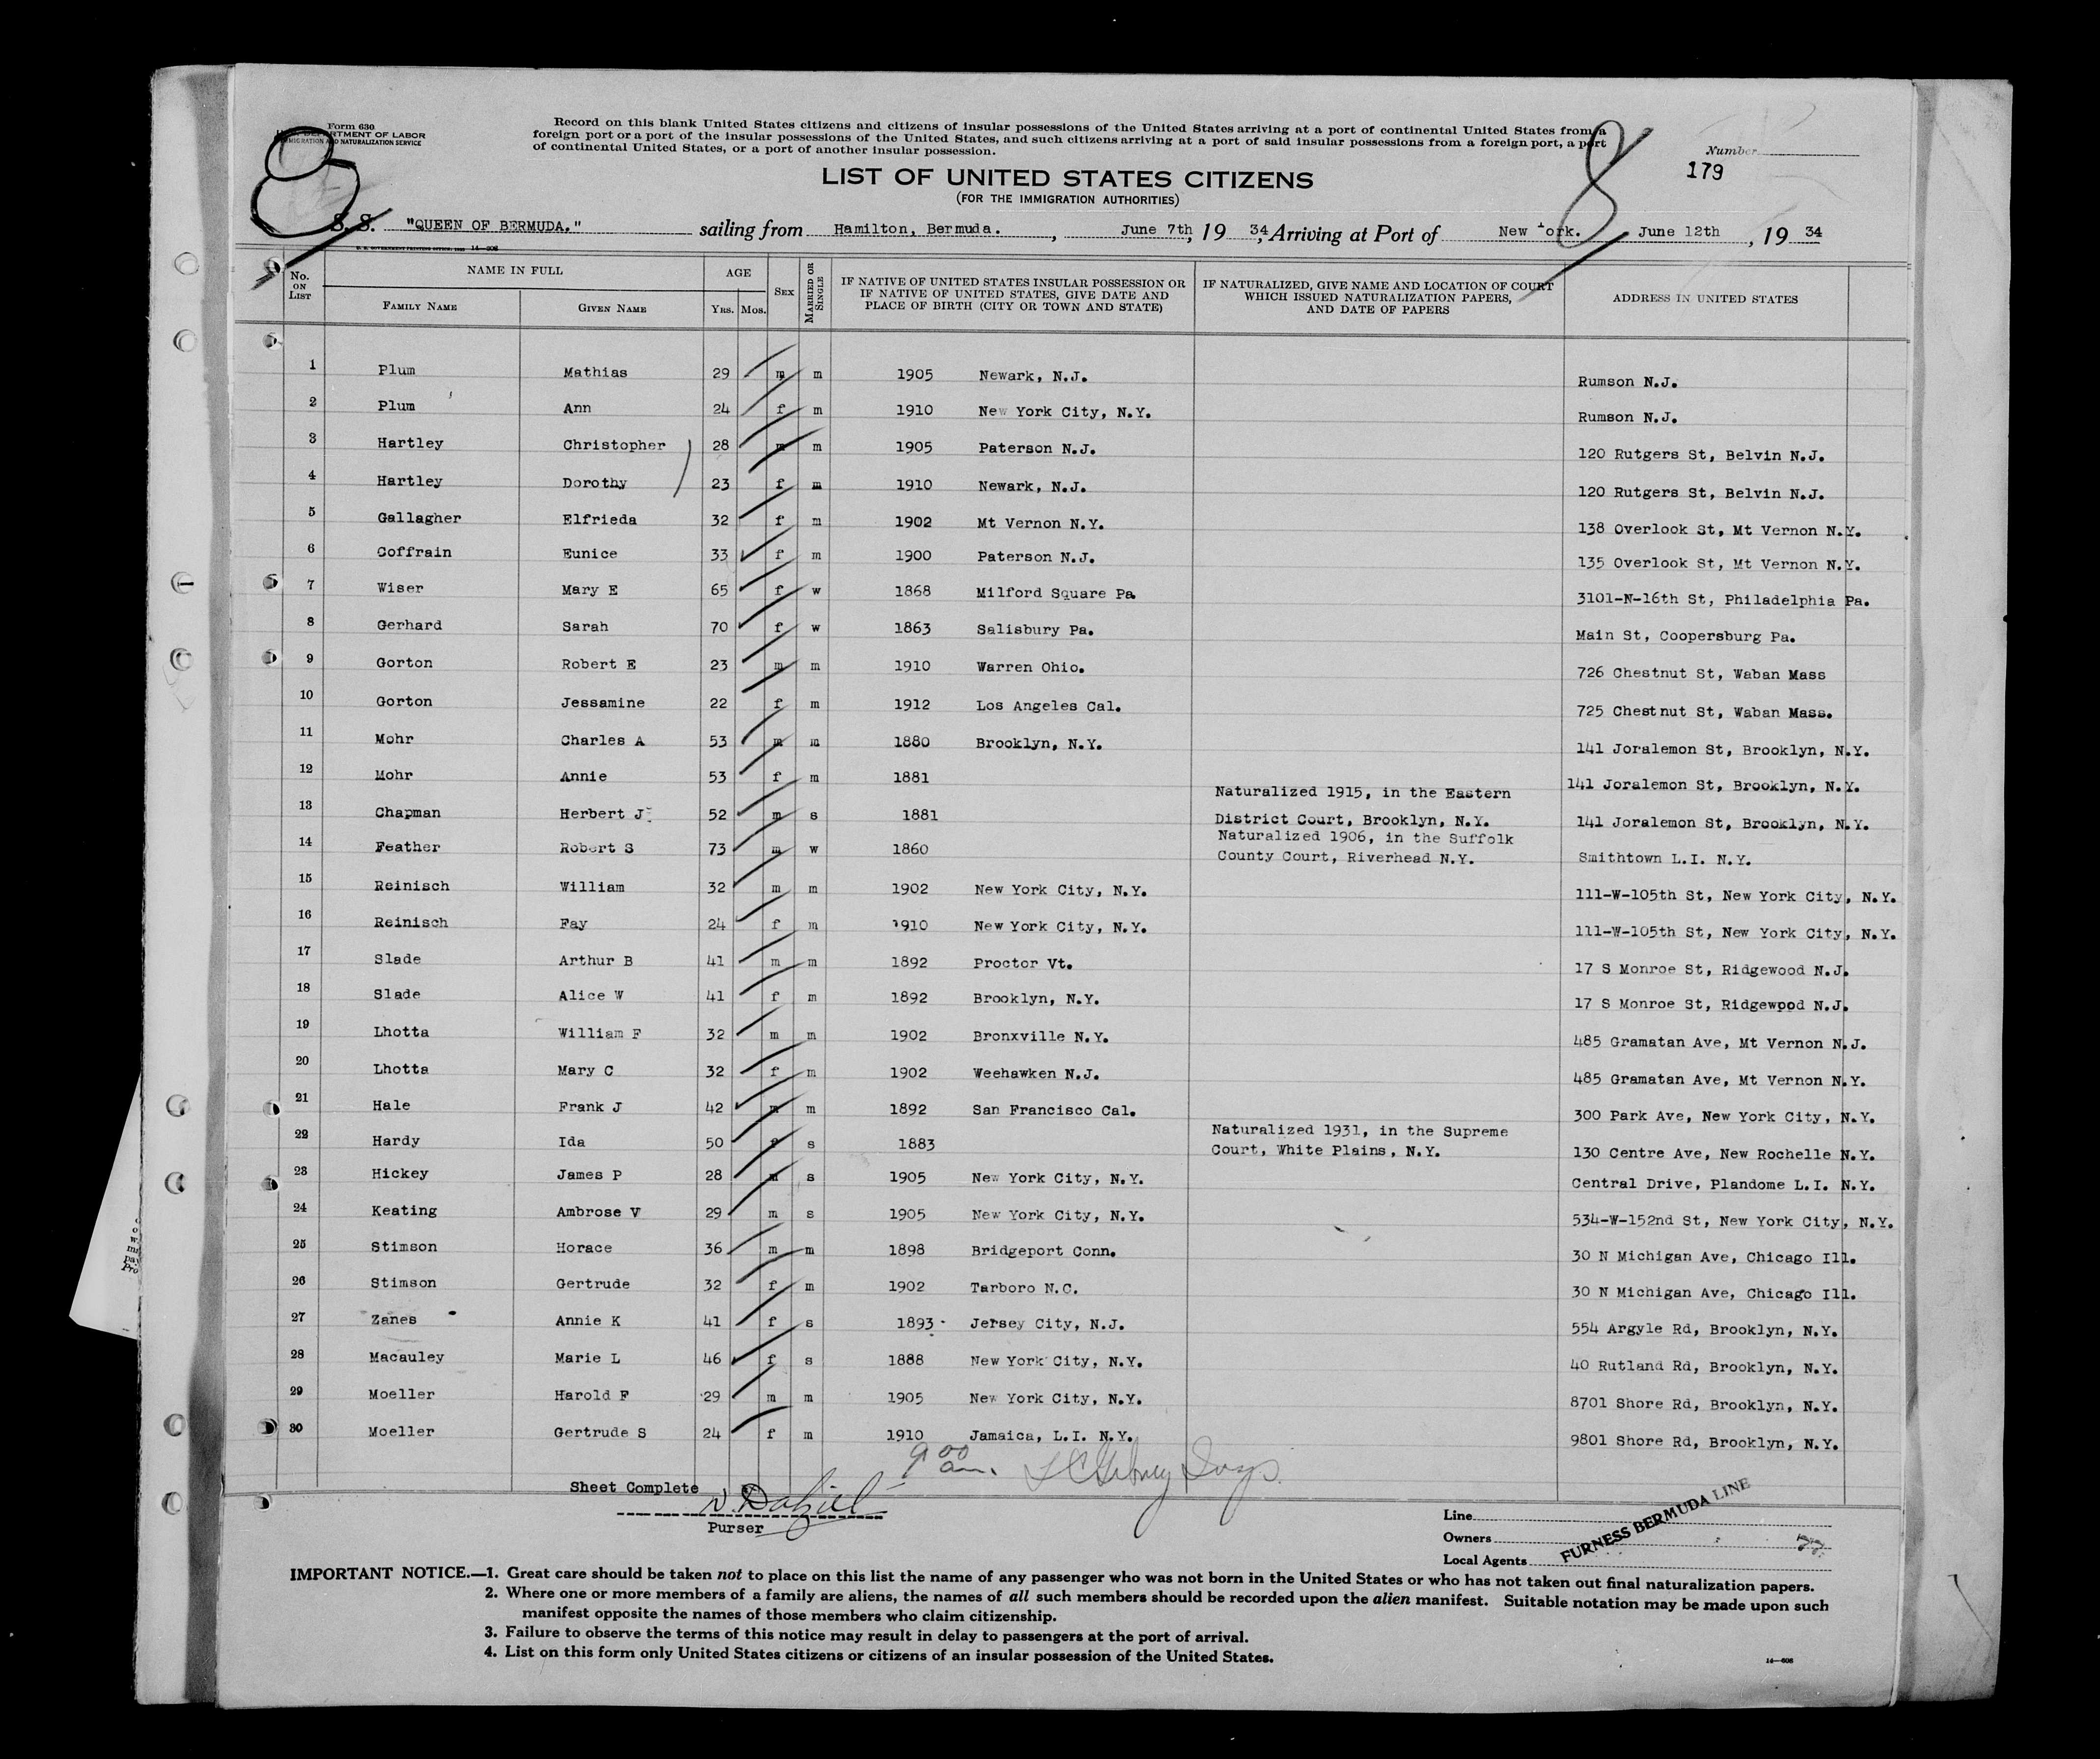 Form 630
DEPARTMENT OF LABOR
IMMIGRATION AND NATURALIZATION SERVICE
Record on this blank United States citizens and citizens of insular possessions of the United States arriving at a port of continental United States from a
foreign port or a port of the insular possessions of the United States, and such citizens arriving at a port of said insular possessions from a foreign port, a port
of continental United States, or a port of another insular possession.
Number
179
8
LIST OF UNITED STATES CITIZENS
(FOR THE IMMIGRATION AUTHORITIES)
S. S. "QUEEN OF BERMUDA." sailing from Hamilton, Bermuda. , June 7th, 19 34, Arriving at Port of New York. June 12th , 19 34
No. ON LIST NAME IN FULL AGE SEX MARRIED OR SINGLE IF NATIVE OF UNITED STATES INSULAR POSSESSION OR IF NATIVE OF UNITED STATES, GIVE DATE AND PLACE OF BIRTH (CITY OR TOWN AND STATE) IF NATURALIZED, GIVE NAME AND LOCATION OF COURT WHICH ISSUED NATURALIZATION PAPERS, AND DATE OF PAPERS ADDRESS IN UNITED STATES
FAMILY NAME GIVEN NAME YRS. MOS.
1 Plum Mathias 29 m m 1905 Newark, N.J. Rumson N.J.
2 Plum Ann 24 f m 1910 New York City, N.Y. Rumson N.J.
3 Hartley Christopher 28 m m 1905 Paterson N.J. 120 Rutgers St, Belvin N.J.
4 Hartley Dorothy 23 f m 1910 Newark, N.J. 120 Rutgers St, Belvin N.J.
5 Gallagher Elfrieda 32 f m 1902 Mt Vernon N.Y. 138 Overlook St, Mt Vernon N.Y.
6 Coffrain Eunice 33 f m 1900 Paterson N.J. 135 Overlook St, Mt Vernon N.Y.
7 Wiser Mary E 65 f w 1868 Milford Square Pa 3101-N-16th St, Philadelphia Pa.
8 Gerhard Sarah 70 f w 1863 Salisbury Pa. Main St, Coopersburg Pa.
9 Gorton Robert E 23 m m 1910 Warren Ohio. 726 Chestnut St, Waban Mass
10 Gorton Jessamine 22 f m 1912 Los Angeles Cal. 725 Chestnut St, Waban Mass.
11 Mohr Charles A 53 m m 1880 Brooklyn, N.Y. 141 Joralemon St, Brooklyn, N.Y.
12 Mohr Annie 53 f m 1881 141 Joralemon St, Brooklyn, N.Y.
Naturalized 1915, in the Eastern
13 Chapman Herbert J 52 m s 1881 District Court, Brooklyn, N.Y. 141 Joralemon St, Brooklyn, N.Y.
Naturalized 1906, in the Suffolk
14 Feather Robert S 73 m w 1860 County Court, Riverhead N.Y. Smithtown L.I. N.Y.
15 Reinisch William 32 m m 1902 New York City, N.Y. 111-W-105th St, New York City, N.Y.
16 Reinisch Fay 24 f m 1910 New York City, N.Y. 111-W-105th St, New York City, N.Y.
17 Slade Arthur B 41 m m 1892 Proctor Vt. 17 S Monroe St, Ridgewood N.J.
18 Slade Alice W 41 f m 1892 Brooklyn, N.Y. 17 S Monroe St, Ridgewood N.J.
19 Lhotta William F 32 m m 1902 Bronxville N.Y. 485 Gramatan Ave, Mt Vernon N.J.
20 Lhotta Mary C 32 f m 1902 Weehawken N.J. 485 Gramatan Ave, Mt Vernon N.Y.
21 Hale Frank J 42 m m 1892 San Francisco Cal. 300 Park Ave, New York City, N.Y.
Naturalized 1931, in the Supreme
22 Hardy Ida 50 f s 1883 Court, White Plains, N.Y. 130 Centre Ave, New Rochelle N.Y.
23 Hickey James P 28 m s 1905 New York City, N.Y. Central Drive, Plandome L.I. N.Y.
24 Keating Ambrose V 29 m s 1905 New York City, N.Y. 534-W-152nd St, New York City, N.Y.
25 Stimson Horace 36 m m 1898 Bridgeport Conn. 30 N Michigan Ave, Chicago Ill.
26 Stimson Gertrude 32 f m 1902 Tarboro N.C. 30 N Michigan Ave, Chicago Ill.
27 Zanes Annie K 41 f s 1893 Jersey City, N.J. 554 Argyle Rd, Brooklyn, N.Y.
28 Macauley Marie L 46 f s 1888 New York City, N.Y. 40 Rutland Rd, Brooklyn, N.Y.
29 Moeller Harold F 29 m m 1905 New York City, N.Y. 8701 Shore Rd, Brooklyn, N.Y.
30 Moeller Gertrude S 24 f m 1910 Jamaica, L.I. N.Y. 9801 Shore Rd, Brooklyn, N.Y.
9 00 am.
Sheet Complete
Purser
Line
Owners
Local Agents
FURNESS BERMUDA LINE
IMPORTANT NOTICE.—1. Great care should be taken not to place on this list the name of any passenger who was not born in the United States or who has not taken out final naturalization papers.
2. Where one or more members of a family are aliens, the names of all such members should be recorded upon the alien manifest. Suitable notation may be made upon such
manifest opposite the names of those members who claim citizenship.
3. Failure to observe the terms of this notice may result in delay to passengers at the port of arrival.
4. List on this form only United States citizens or citizens of an insular possession of the United States.
14—608